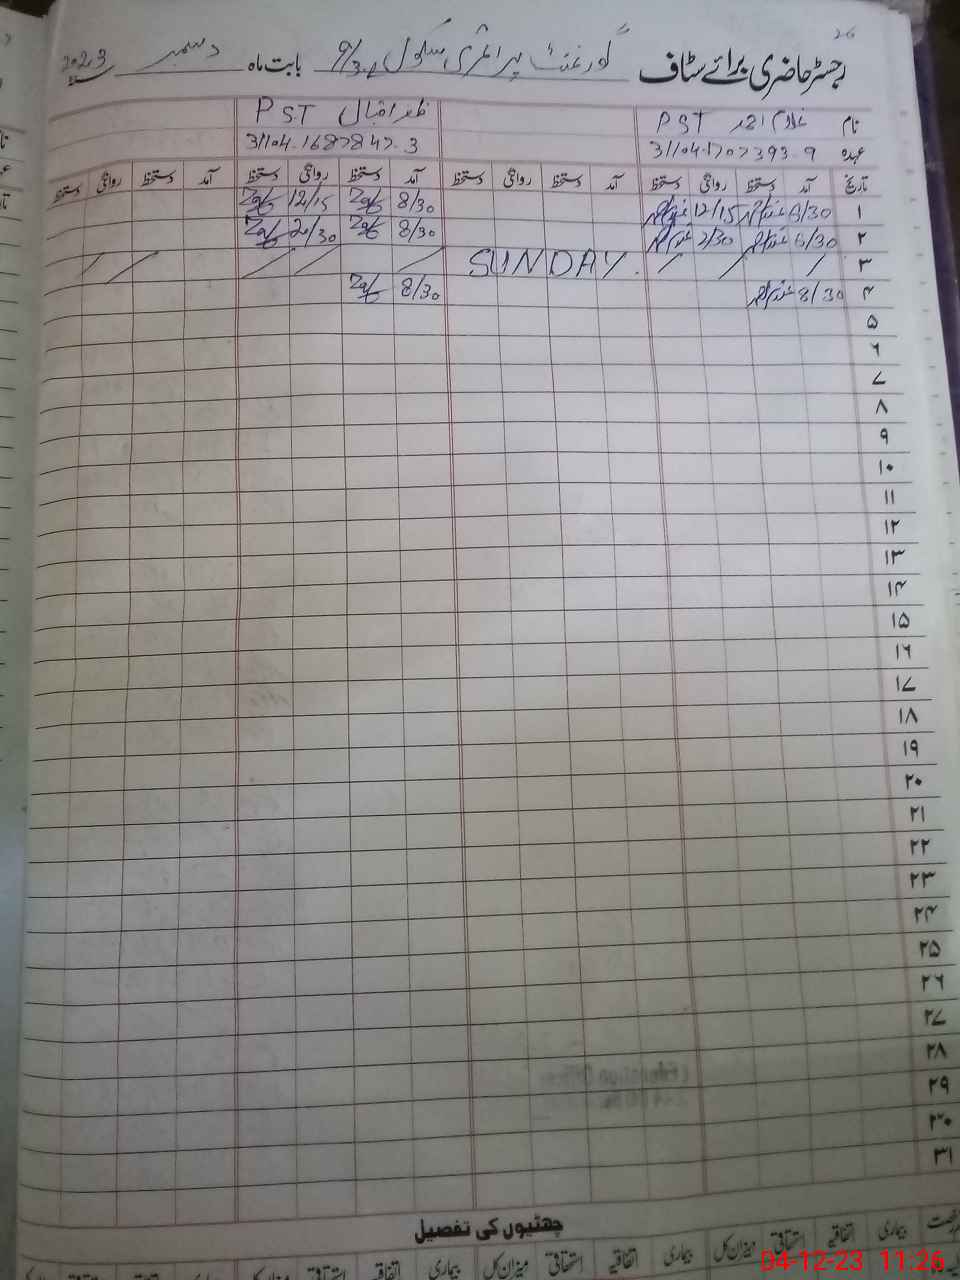 26
رجسٹر حاضری برائے سٹاف گورنمنٹ پرائمری سکول 9/3.L بابت ماہ دسمبر 2023
نام غلام احمد PST ظفر اقبال PST
عہدہ 31104.1707393.9 31104.1687847.3
تاریخ آمد دستخط روانگی دستخط آمد دستخط روانگی دستخط آمد دستخط روانگی دستخط آمد دستخط روانگی دستخط
۱ 8/30 12/15 8/30 12/15
۲ 8/30 2/30 8/30 2/30
۳ / / / SUNDAY. / / / / /
۴ 8/30 8/30
۵
۶
۷
۸
۹
۱۰
۱۱
۱۲
۱۳
۱۴
۱۵
۱۶
۱۷
۱۸
۱۹
۲۰
۲۱
۲۲
۲۳
۲۴
۲۵
۲۶
۲۷
۲۸
۲۹
۳۰
۳۱
چھٹیوں کی تفصیل
رخصت بیماری اتفاقیہ استحقاقی میزان کل بیماری اتفاقیہ استحقاقی میزان کل بیماری اتفاقیہ استحقاقی میزان کل
04-12-23 11:26